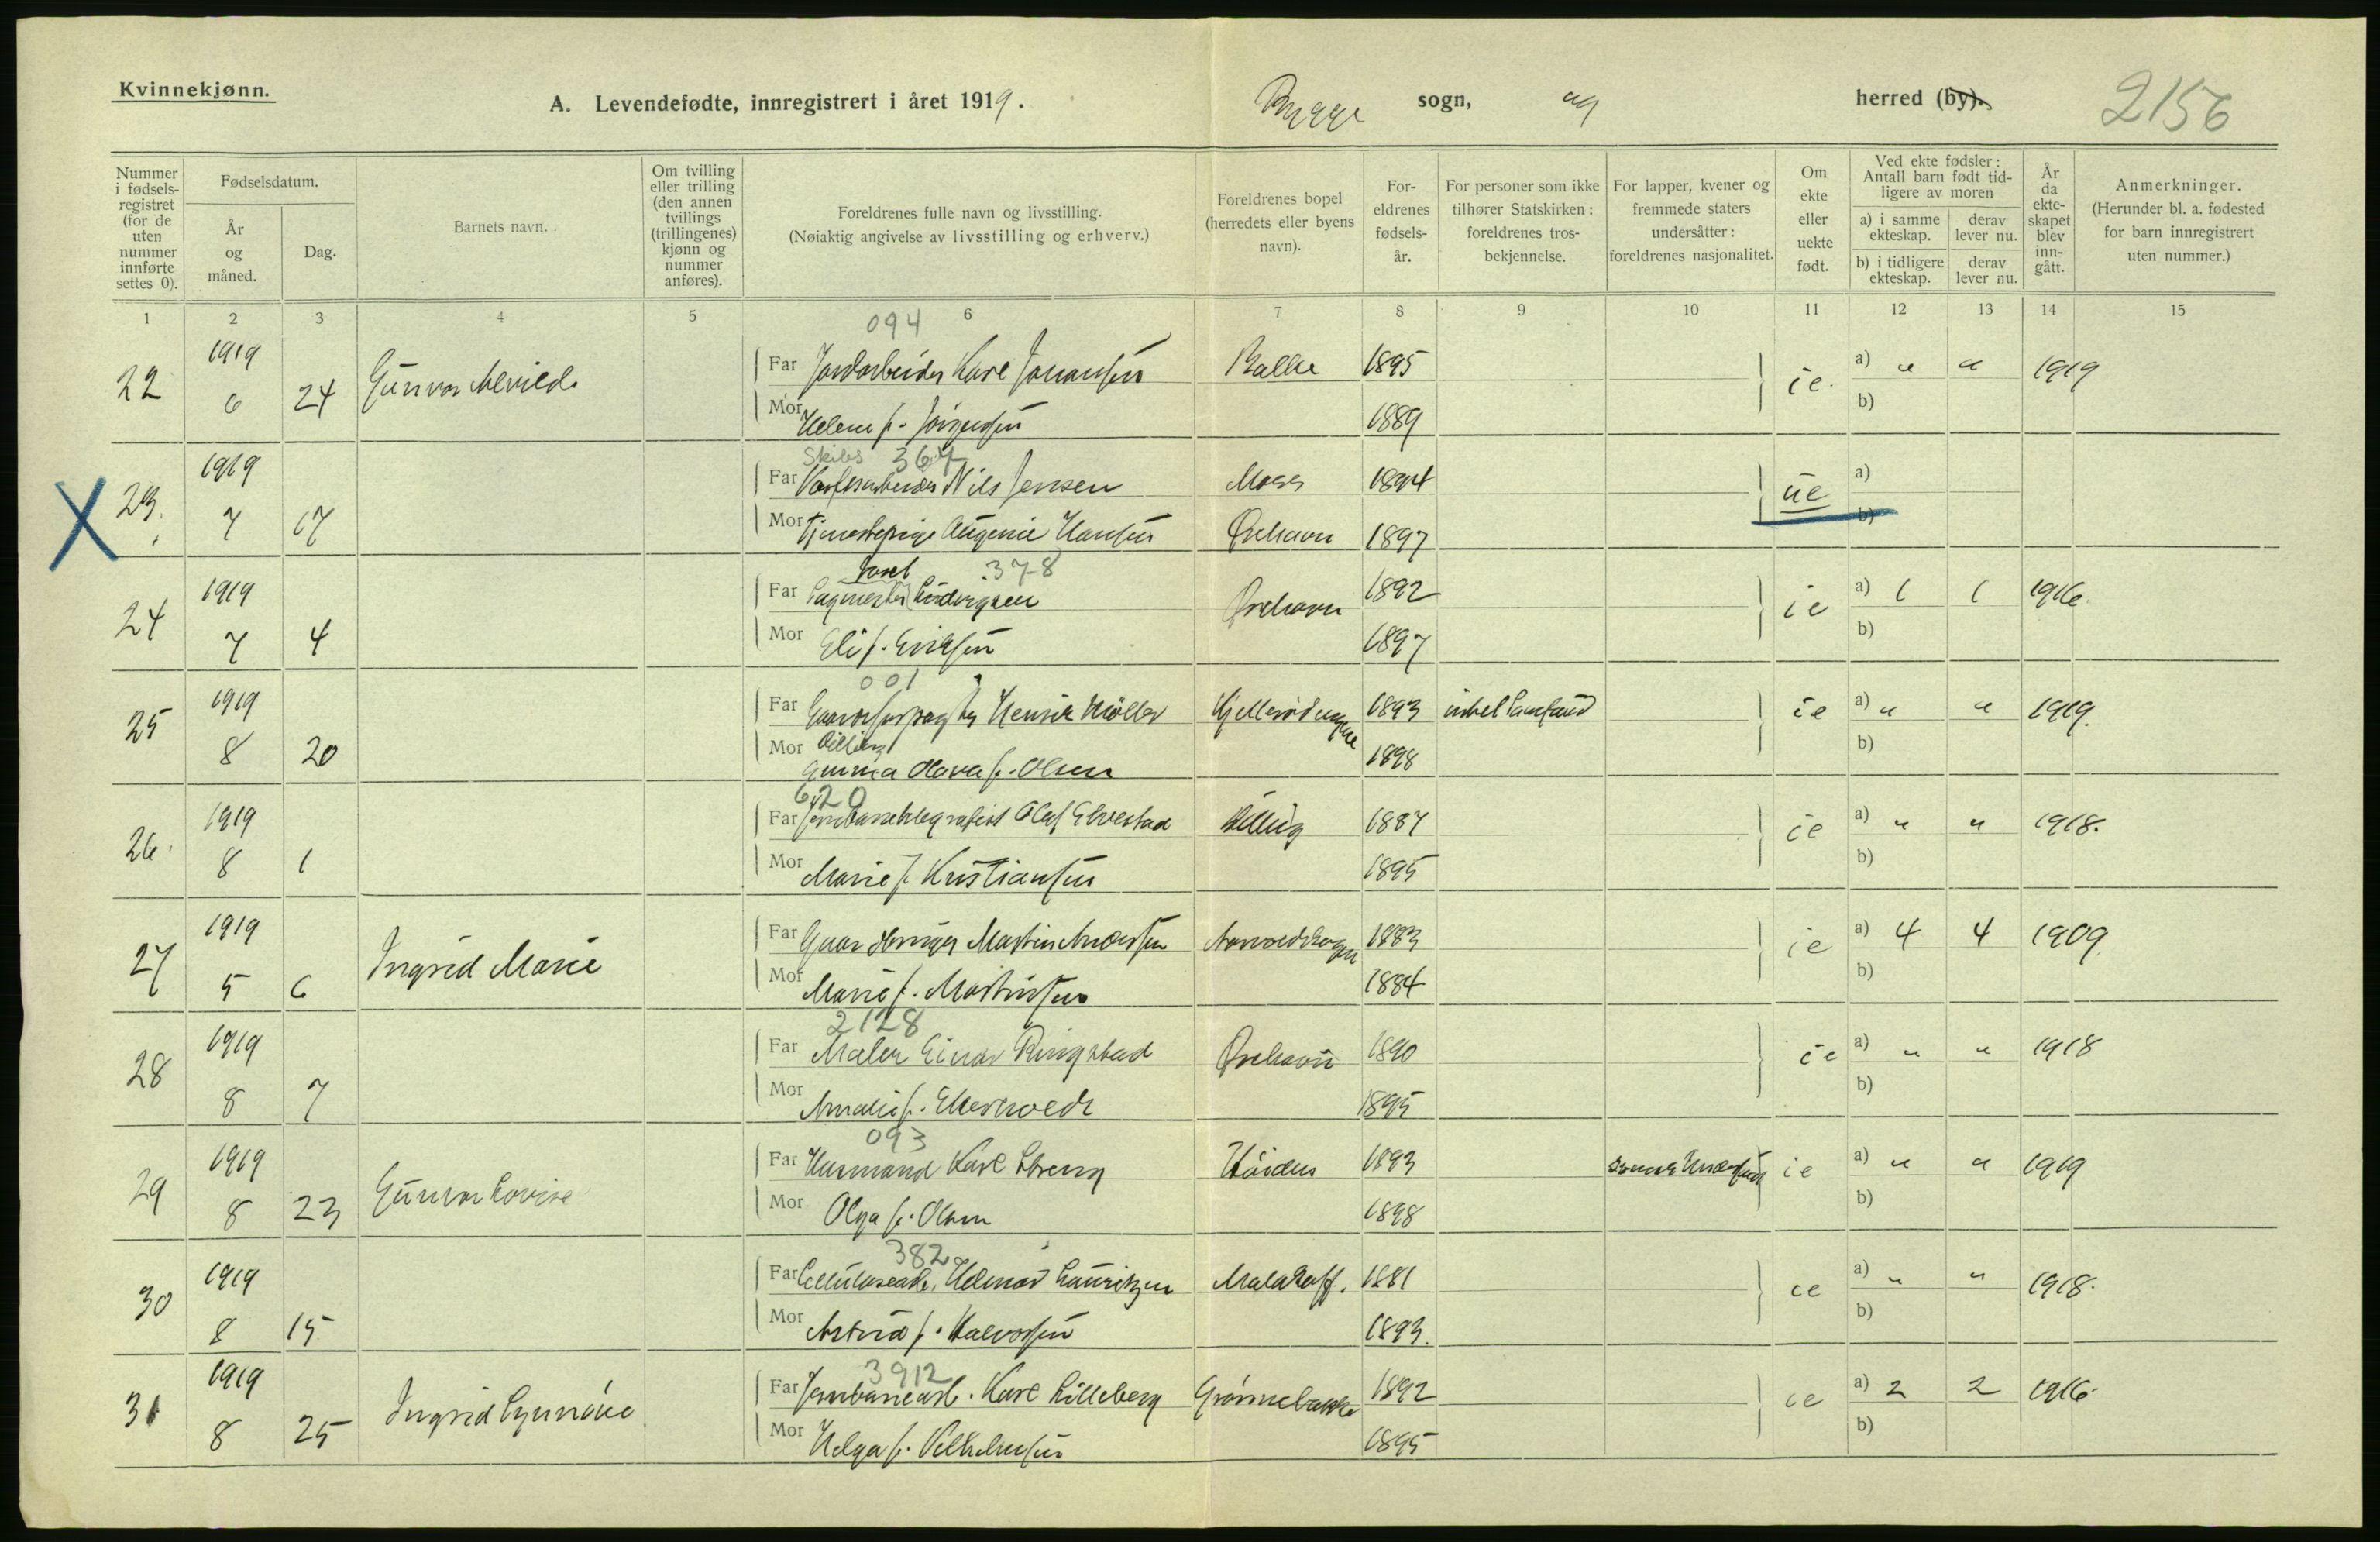 Kvinnekjønn.
A. Levendefødte, innregistrert i året 1919.
Rygge sogn, herred (by).
2156
Nummer i fødsels-registret (for de uten nummer innførte settes 0).
Fødselsdatum.
År og måned.
Dag.
Barnets navn.
Om tvilling eller trilling (den annen tvillings (trillingenes) kjønn og nummer anføres).
Foreldrenes fulle navn og livsstilling.
(Nøiaktig angivelse av livsstilling og erhverv.)
Foreldrenes bopel (herredets eller byens navn).
For-eldrenes fødsels-år.
For personer som ikke tilhører Statskirken: foreldrenes tros-bekjennelse.
For lapper, kvener og fremmede staters undersåtter: foreldrenes nasjonalitet.
Om ekte eller uekte født.
Ved ekte fødsler: Antall barn født tid-ligere av moren
a) i samme ekteskap. derav lever nu.
b) i tidligere ekteskap. derav lever nu.
År da ekte-skapet blev inn-gått.
Anmerkninger.
(Herunder bl. a. fødested for barn innregistrert uten nummer.)
1 2 3 4 5 6 7 8 9 10 11 12 13 14 15
094
22 1919 Far Jordarbeider Karl Johansen Balke 1895 ie a) " " 1919
6 24 Gunvor Alvilde Mor Helene f. Jørgensen 1889 b)
Skibs 364
23. 1919 Far Værftsarbeider Nils Jensen Moss 1894 ue a)
7 17 Mor Tjenestepige Augenie Hansen Ørehavn 1897 b)
Josef 378
24 1919 Far Sagmester Lindvigsen Ørehavn 1892 ie a) 1 1 1916.
7 4 Mor Eli f. Eriksen 1897 b)
001
25 1919 Far Henrik Möller 1893 ie a) " " 1919.
8 20 Mor Emma Olava f. Olsen 1898 b)
620
26. 1919 Far Jernbanetelegrafist Olaf Elvestad Dilling 1887 ie a) " " 1918.
8 1 Mor Marie f. Kristiansen 1895 b)
27 1919 Far Martin Andersen 1883 ie a) 4 4 1909
5 6 Ingrid Marie Mor Marie f. Martinsen 1884 b)
2128
28 1919 Far Maler Einar Ringstad Ørehavn 1890 ie a) " " 1918
8 7 Mor Amalie f. 1895 b)
093
29 1919 Far Husmand Karl Høiden 1893 svensk ie a) " " 1919
8 23 Gunvor Lovise Mor Olga f. Olsen 1898 b)
382
30 1919 Far Cellulosearb. Helmar Lauritzen Malakoff. 1881 ie a) " " 1918.
8 15 Mor Astrid f. Halvorsen 1893. b)
3912
31 1919 Far Jernbanearb. Karl Lilleberg Grønnebakke 1892 ie a) 2 2 1916.
8 25 Ingrid Synnøve Mor Helga f. Vilhelmsen 1895 b)